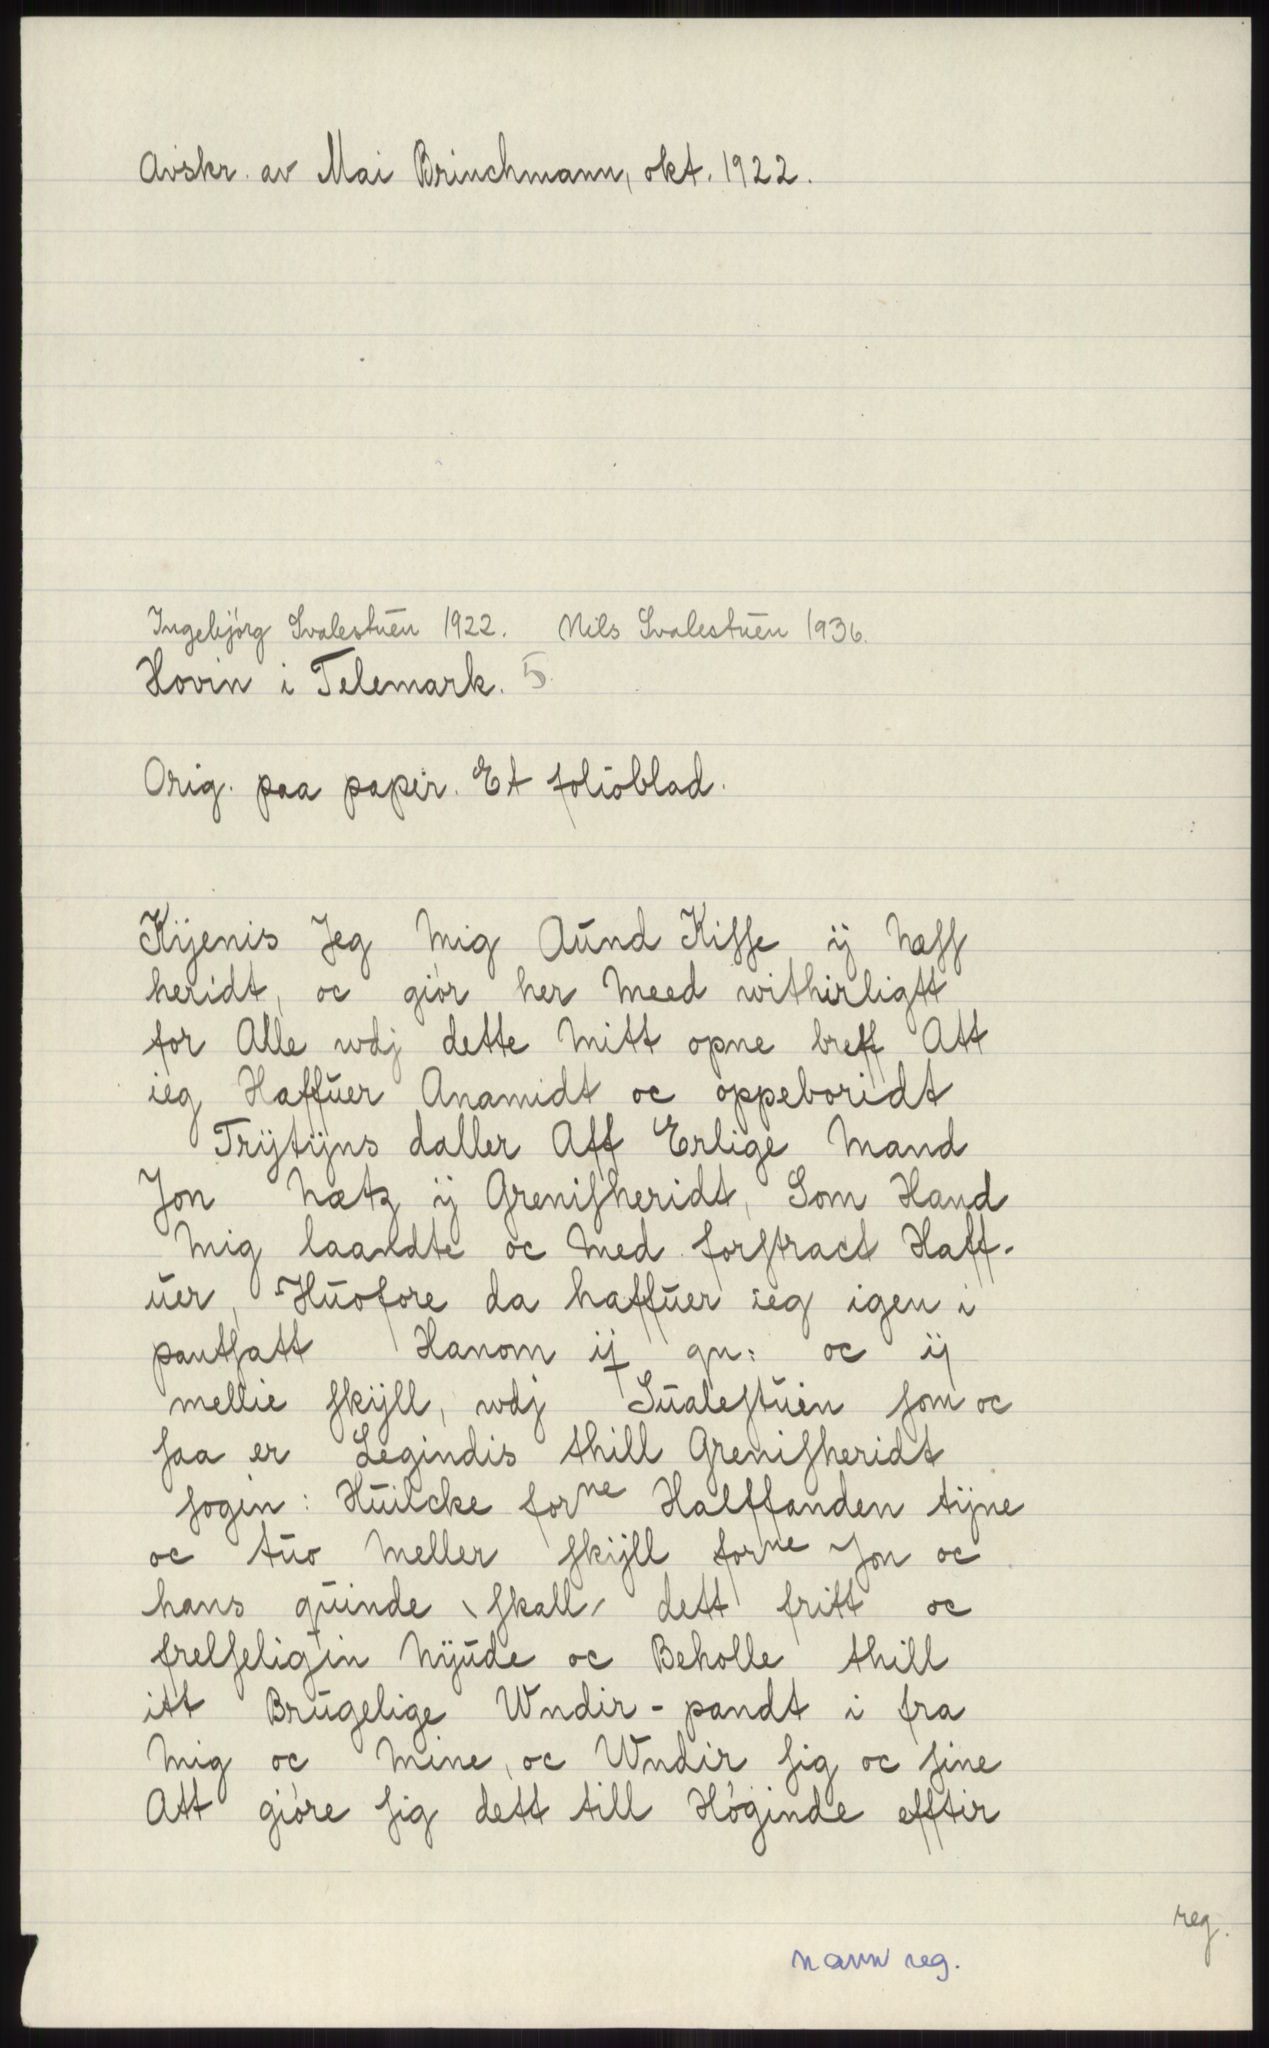 Avskr. av Mai Brinchmann, okt. 1922.
Ingebjörg Svalestuen 1922. Nils Svalestuen 1936.
Hovin i Telemark. 5
Orig. paa papir. Et folioblad.
Kijenis Jeg Mig Aūnd Kisse ij Næss
heridt, oc giör her Meed withirligtt
for Alle wdj dette Mitt opne breff Att
ieg Haffūer Anamidt oc oppeboridt
Trÿtÿns daller Aff Erlige Mand
Jon Nætz ij Grenisheridt, Som Hand
Mig laandte oc Med forstract Haff-
ūer, Hūofore da haffūer ieg igen i
pantsatt Hanom ij qn: oc ij
mellie skÿll, wdj Sūalestūen som oc
saa er Legindis thill Grenisheridt
sogin: Hūilcke forne Halffanden tijne
oc tūo Meller skÿll forne Jon oc
hans qūinde \ skall / dett fritt oc
frelseligin Nÿūde oc Beholle thill
itt Brūgelige Wndir-pandt i fra
Mig oc Mine, oc Wndir sig oc sine
Att giöre sig dett till Höginde efftir
reg.
navn reg.